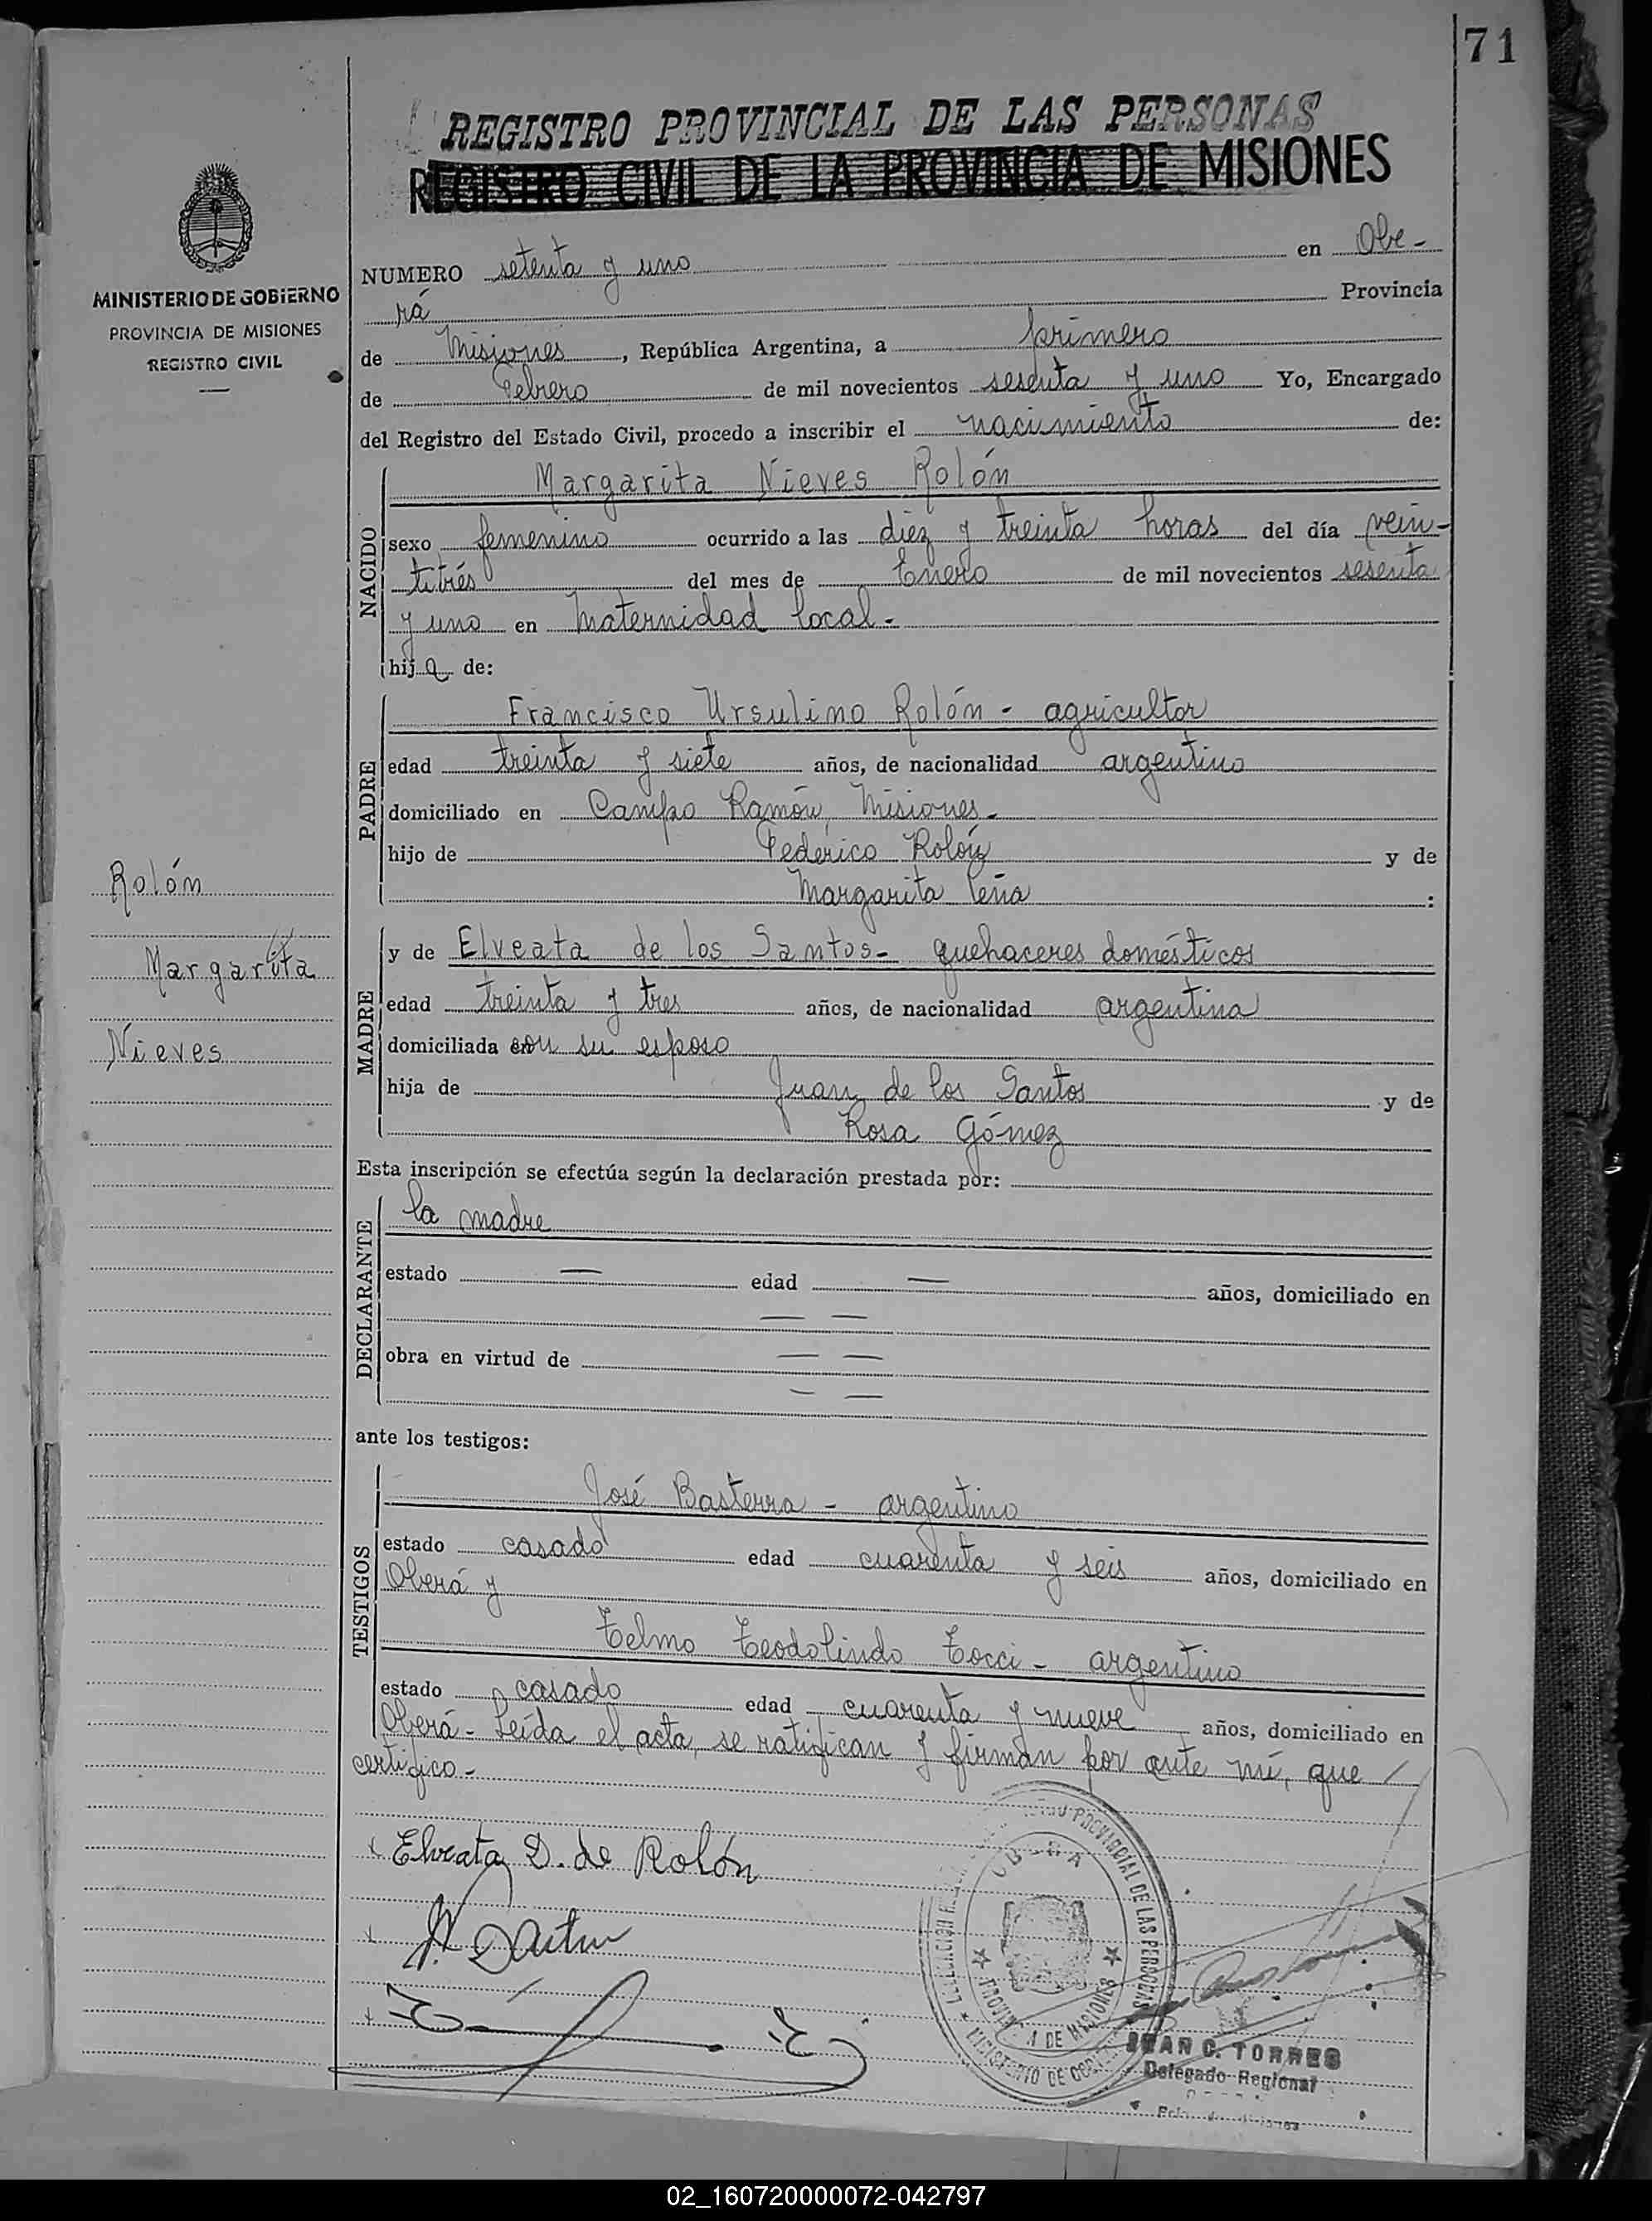 71
REGISTRO PROVINCIAL DE LAS PERSONAS
REGISTRO CIVIL DE LA PROVINCIA DE MISIONES
MINISTERIO DE GOBIERNO
PROVINCIA DE MISIONES
REGISTRO CIVIL
NUMERO setenta y uno en Obe-
rá Provincia
de Misiones, República Argentina, a primero
de Febrero de mil novecientos sesenta y uno Yo, Encargado
del Registro del Estado Civil, procedo a inscribir el nacimiento de:
NACIDO
Margarita Nieves Rolón
sexo femenino ocurrido a las diez y treinta horas del día vein-
titrés del mes de Enero de mil novecientos sesenta
y uno en Maternidad local.-
hija de:
PADRE
Francisco Ursulino Rolón - agricultor
edad treinta y siete años, de nacionalidad argentino
domiciliado en Campo Ramón, Misiones.-
hijo de Federico Rolón y de
Margarita :
Rolón
Margarita
Nieves
MADRE
y de Elveata de los Santos- quehaceres domésticos
edad treinta y tres años, de nacionalidad argentina
domiciliada con su esposo
hija de Juan de los Santos y de
Rosa Gómez
Esta inscripción se efectúa según la declaración prestada por:
DECLARANTE
la madre
estado — edad — años, domiciliado en
— —
obra en virtud de — —
— —
ante los testigos:
TESTIGOS
José Basterra - argentino
estado casado edad cuarenta y seis años, domiciliado en
Oberá y
Telmo Teodolindo Tocci - argentino
estado casado edad cuarenta y nueve años, domiciliado en
Oberá - Leída el acta, se ratifican y firman por ante mí, que /
certifico.-
Elveata D. de Rolón
OBERA
PROVINCIAL DE LAS PERSONAS
DE MISIONES
JUAN C. TORRES
Delegado Regional
02_160720000072-042797